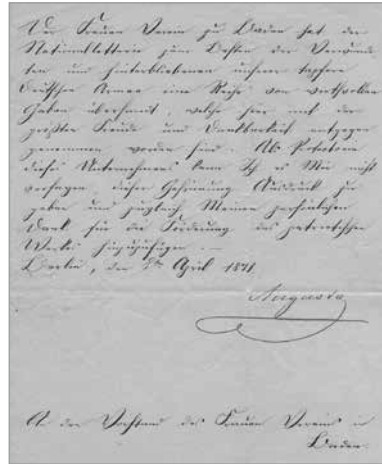 Der Frauen Verein zu Baden hat der
Nationallotterie zum Besten der Verwunde-
ten und Hinterbliebenen unserer tapferen
Deutschen Armee eine Reihe von werthvollen
Gaben übersandt, welche hier mit der
größten Freude und Dankbarkeit entgegen
genommen worden sind. Als Protektorin
dieses Unternehmens kann Ich es Mir nicht
versagen, dieser Gesinnung Ausdruck zu
geben und zugleich Meinen persönlichen
Dank für die Förderung des patriotischen
Werkes hinzuzufügen. —
Berlin, den April 1871.
Augusta
An den Vorstand des Frauen Vereins in
Baden.